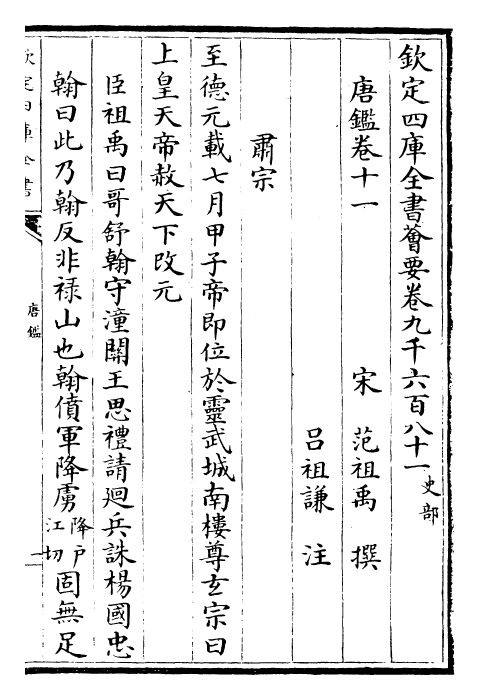 欽定四庫全書薈要卷九千六百八十一史部
唐鑑卷十一
宋 范祖禹 撰
呂祖謙 注
肅宗
至德元載七月甲子帝即位於靈武城南樓尊玄宗曰
上皇天帝赦天下改元
臣祖禹曰哥舒翰守潼關王思禮請廻兵誅楊國忠
翰曰此乃翰反非祿山也翰僨軍降虜降戶江切固無足
欽定四庫全書
唐鑑